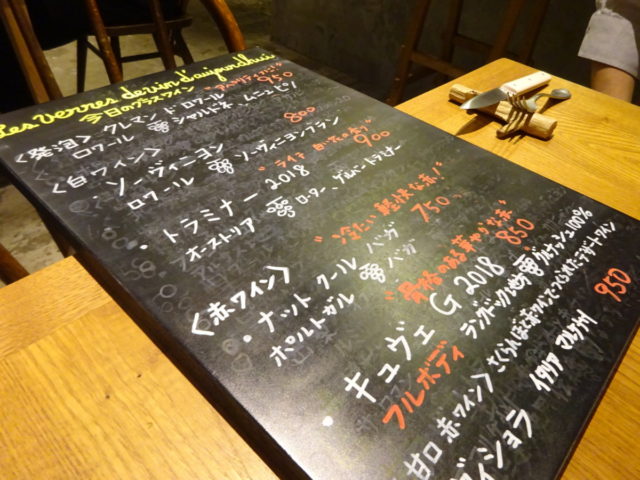 Les Verres de vin d'aujourd'hui
今日のグラスワイン
<発泡> クレマン ド ロワール 950
ロワール シャルドネ、ムニュピノ
<白ワイン>
・ソーヴィニヨン 800
ロワール ソーヴィニヨンブラン
・トラミナー 2018 900
オーストリア ローター、ゲルバートラミナー
<赤ワイン> "冷たい軽快な赤!"
・ナット クール バガ 750
ポルトガル バガ
"骨格のある華やかな赤"
・キュヴェ G 2018 850
フルボディ ラングドック地方 グルナッシュ100%
<甘口 赤ワイン> さくらんぼと赤ワインでつくられたデザートワイン
ヴィショラ イタリア マルケ州 950